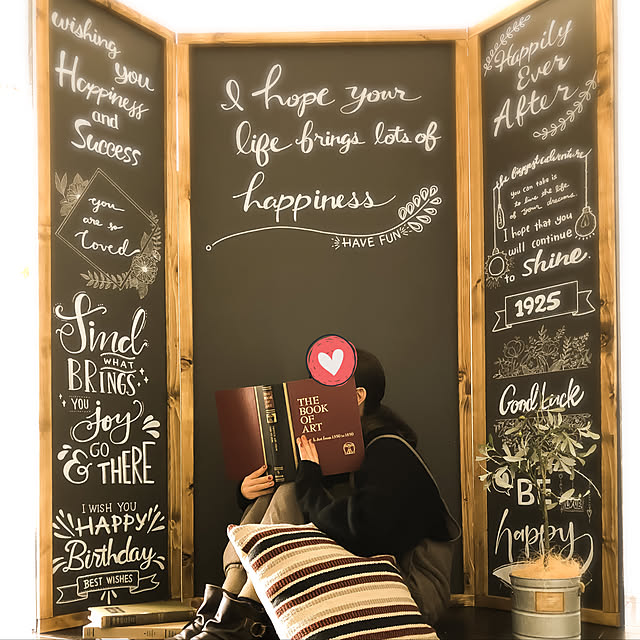 wishing
you
Happiness
and
Success
you
are so
loved
find
WHAT
BRINGS
YOU
joy
GO
& THERE
I WISH YOU
HAPPY
Birthday
BEST WISHES
I hope your
life brings lots of
happiness
HAVE FUN
THE
BOOK
OF
ART
Happily
Ever
After
the biggest adventure
you can take is
to live the life
of your dreams.
I hope that you
will continue
to shine.
1925
Good Luck
BE
happy